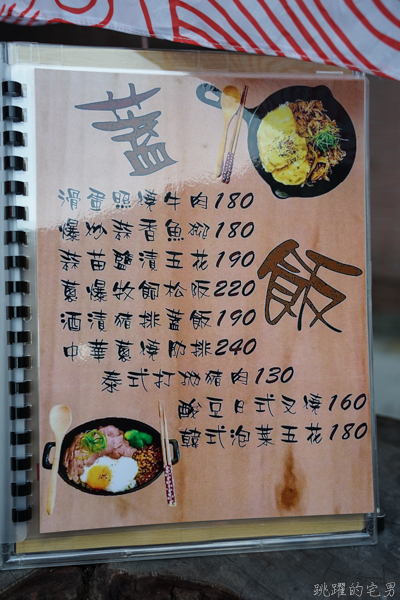 蓋
飯
滑蛋照燒牛肉180
爆炒蒜香魚柳180
蒜苗鹽漬五花190
蔥爆牧飼松阪220
酒漬豬排蓋飯190
中華蔥燒肋排240
泰式打拋豬肉130
酸豆日式叉燒160
韓式泡菜五花180
跳躍的宅男